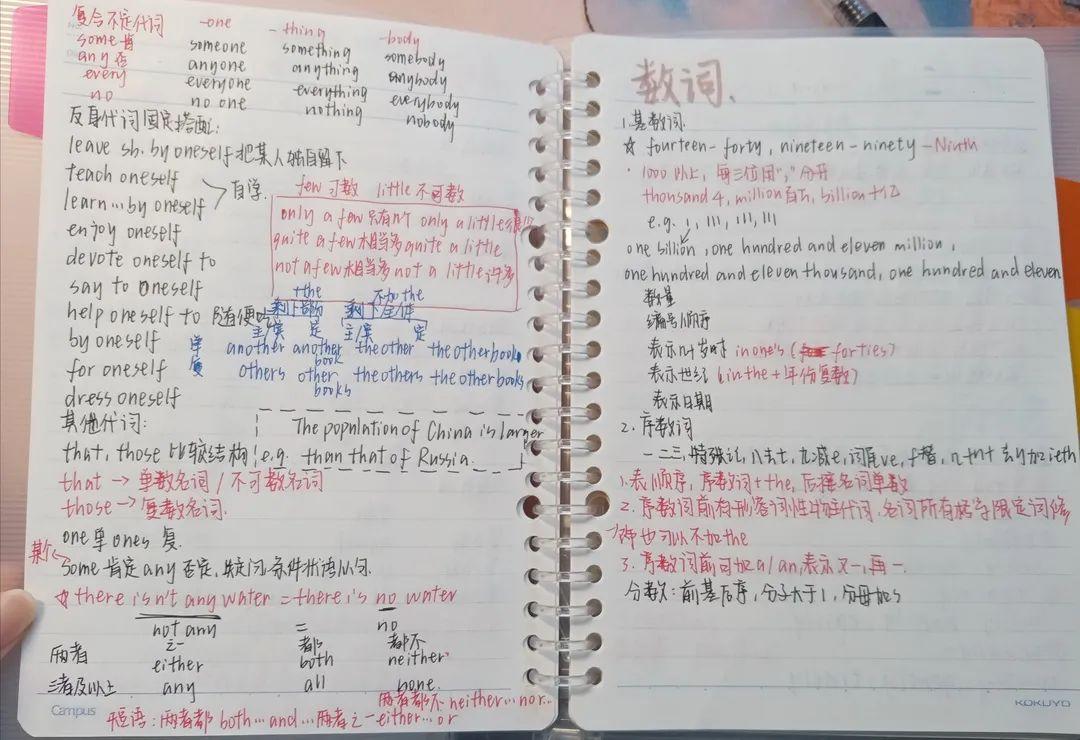 复合不定代词 -one -thing -body
some肯 someone something somebody
any否 anyone anything anybody
every everyone everything everybody
no no one nothing nobody
反身代词固定搭配:
leave sb. by oneself 把某人独自留下
teach oneself
learn...by oneself 自学
enjoy oneself
devote oneself to
say to oneself
help oneself to 随便吃
by oneself
for oneself
dress oneself
few可数 little 不可数
only a few 只有几个 only a little
quite a few 相当多 quite a little
not a few 相当多 not a little 许多
+the 不加the
剩下部分 剩下全体
主/宾 定 主/宾 定
单 another another book the other the other book
复 others other books the others the other books
其他代词:
that, those 比较结构 e.g. The population of China is larger
than that of Russia.
that → 单数名词 / 不可数名词
those → 复数名词.
one 单 ones 复.
某个
Some 肯定 any 否定, 疑问, 条件状语从句.
☆ there isn't any water = there is no water
not any = no
之一 都 都不
两者 either both neither
三者及以上 any all none
两者都不 neither...nor...
短语: 两者都 both...and... 两者之一 either...or
Campus
数词.
1.基数词.
☆ fourteen-forty, nineteen-ninety-Ninth
· 1000以上, 每三位用","分开
thousand 千, million 百万, billion 十亿
e.g. 1, 111, 111, 111
one billion, one hundred and eleven million,
one hundred and eleven thousand, one hundred and eleven
数量
编号/顺序
表示几十岁时 in one's (forties)
表示世纪 (in the + 年份复数)
表示日期
2. 序数词
一二三, 特殊记, 八去t, 九去e,
1.表顺序, 序数词+the, 后接名词单数
2. 序数词前有形容词性物主代词, 名词所有格等限定词修
饰也可以不加the
3. 序数词前可加a/an, 表示又一, 再一.
分数: 前基后序, 分子大于1, 分母加s
KOKUYO